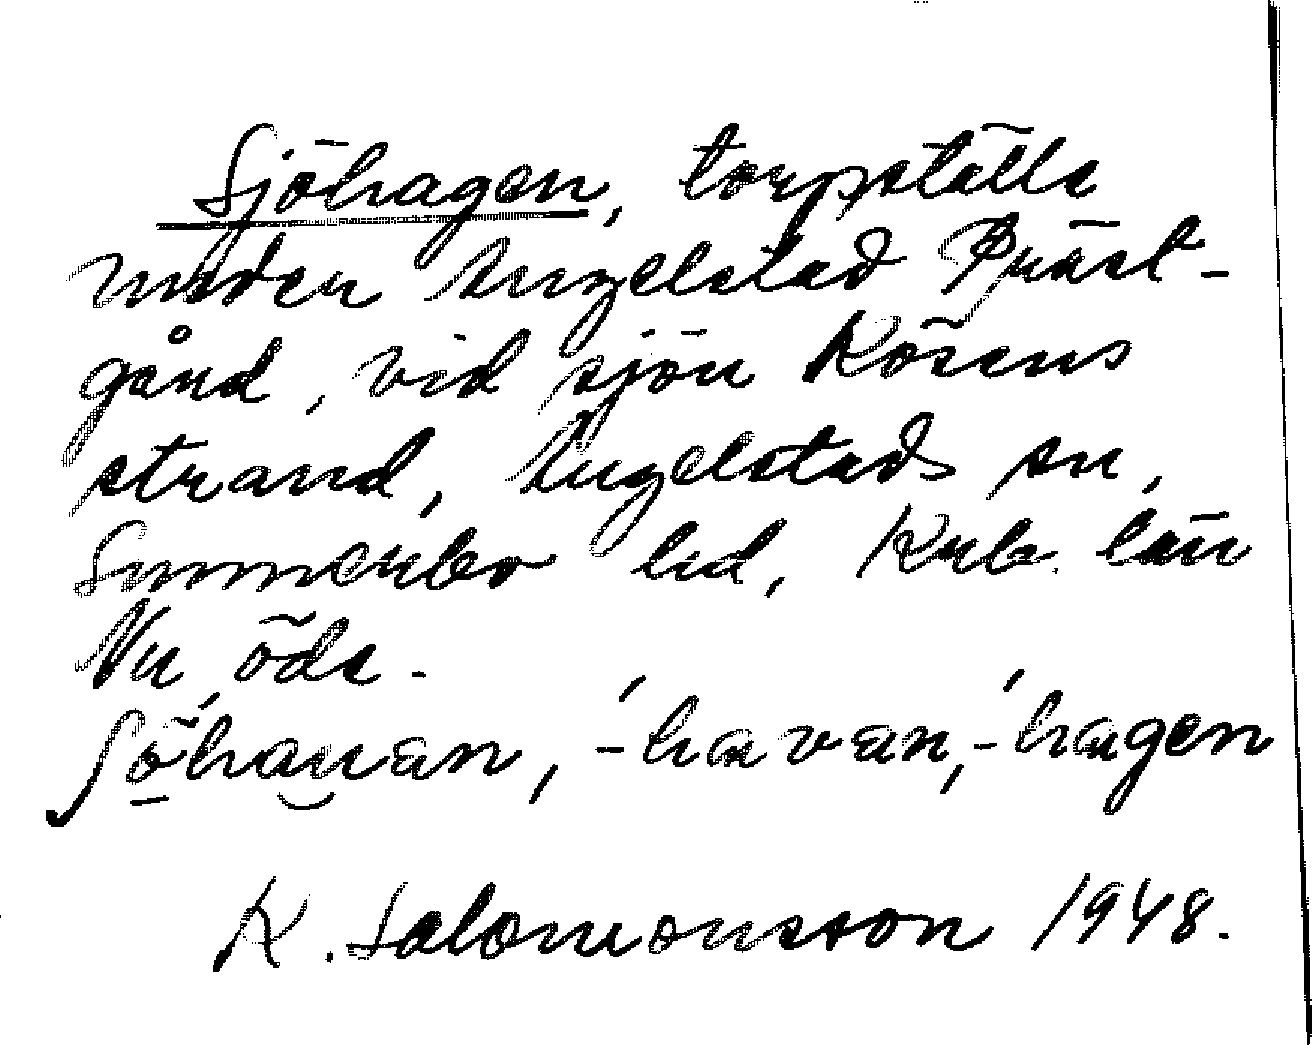 Sjöhagen, torpställe
under Angelstad Präst-
gård, vid sjön Kösens
strand, Angelstads sn,
Sunnerbo hd, Krb. län
Nu öde.
ʃö̱hau̯an, -havan, -hagen
K. Salomonsson 1948.